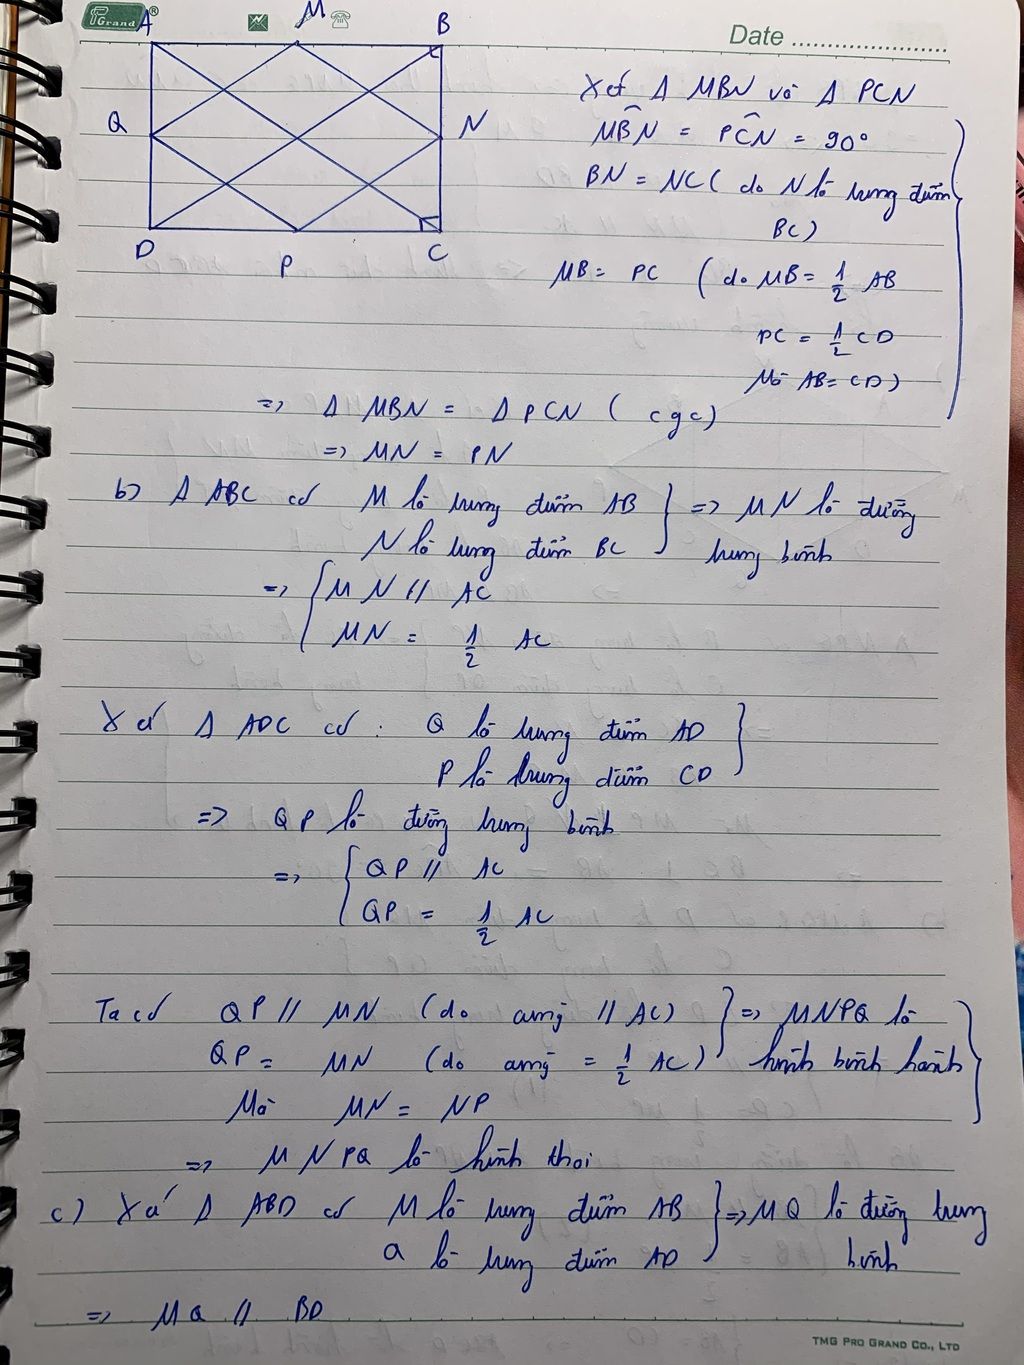 Grand®
Date
A M B
Q N
D P C
Xét Δ MBN và Δ PCN
MBN = PCN = 90°
BN = NC ( do N là trung điểm
BC)
MB = PC ( do MB = 1/2 AB
PC = 1/2 CD
Mà AB = CD )
=> Δ MBN = Δ PCN ( cgc)
=> MN = PN
b) Δ ABC có M là trung điểm AB } => MN là đường
N là trung điểm BC trung bình
=> { MN // AC
MN = 1/2 AC
Xét Δ ADC có : Q là trung điểm AD }
P là trung điểm CD
=> QP là đường trung bình
=> { QP // AC
QP = 1/2 AC
Ta có QP // MN (do cùng // AC) } => MNPQ là
QP = MN (do cùng = 1/2 AC) hình bình hành
Mà MN = NP
=> MNPQ là hình thoi
c) Xét Δ ABD có M là trung điểm AB } => MQ là đường trung
Q là trung điểm AD bình
=> MQ // BD
TMG PRO GRAND CO., LTD